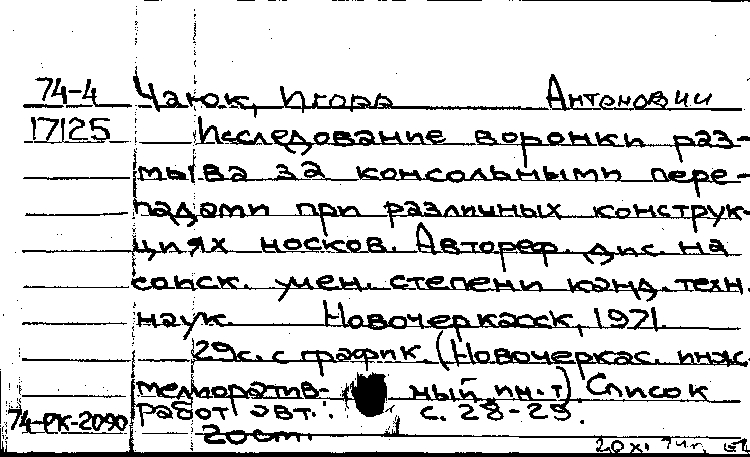 74-4 Чаюк, Игорь Антонович
17125 Исследование воронки раз-
мыва за консольными пере-
падами при различных конструк-
циях носков. Автореф. дис. на
соиск. учен. степени канд. техн.
наук. Новочеркасск, 1971.
29с. с график. (Новочеркас. инж.
мелиоратив- ный ин-т). Список
74-РК-2090 работ авт.: с. 28-29.
200т.
20 XI 74г.